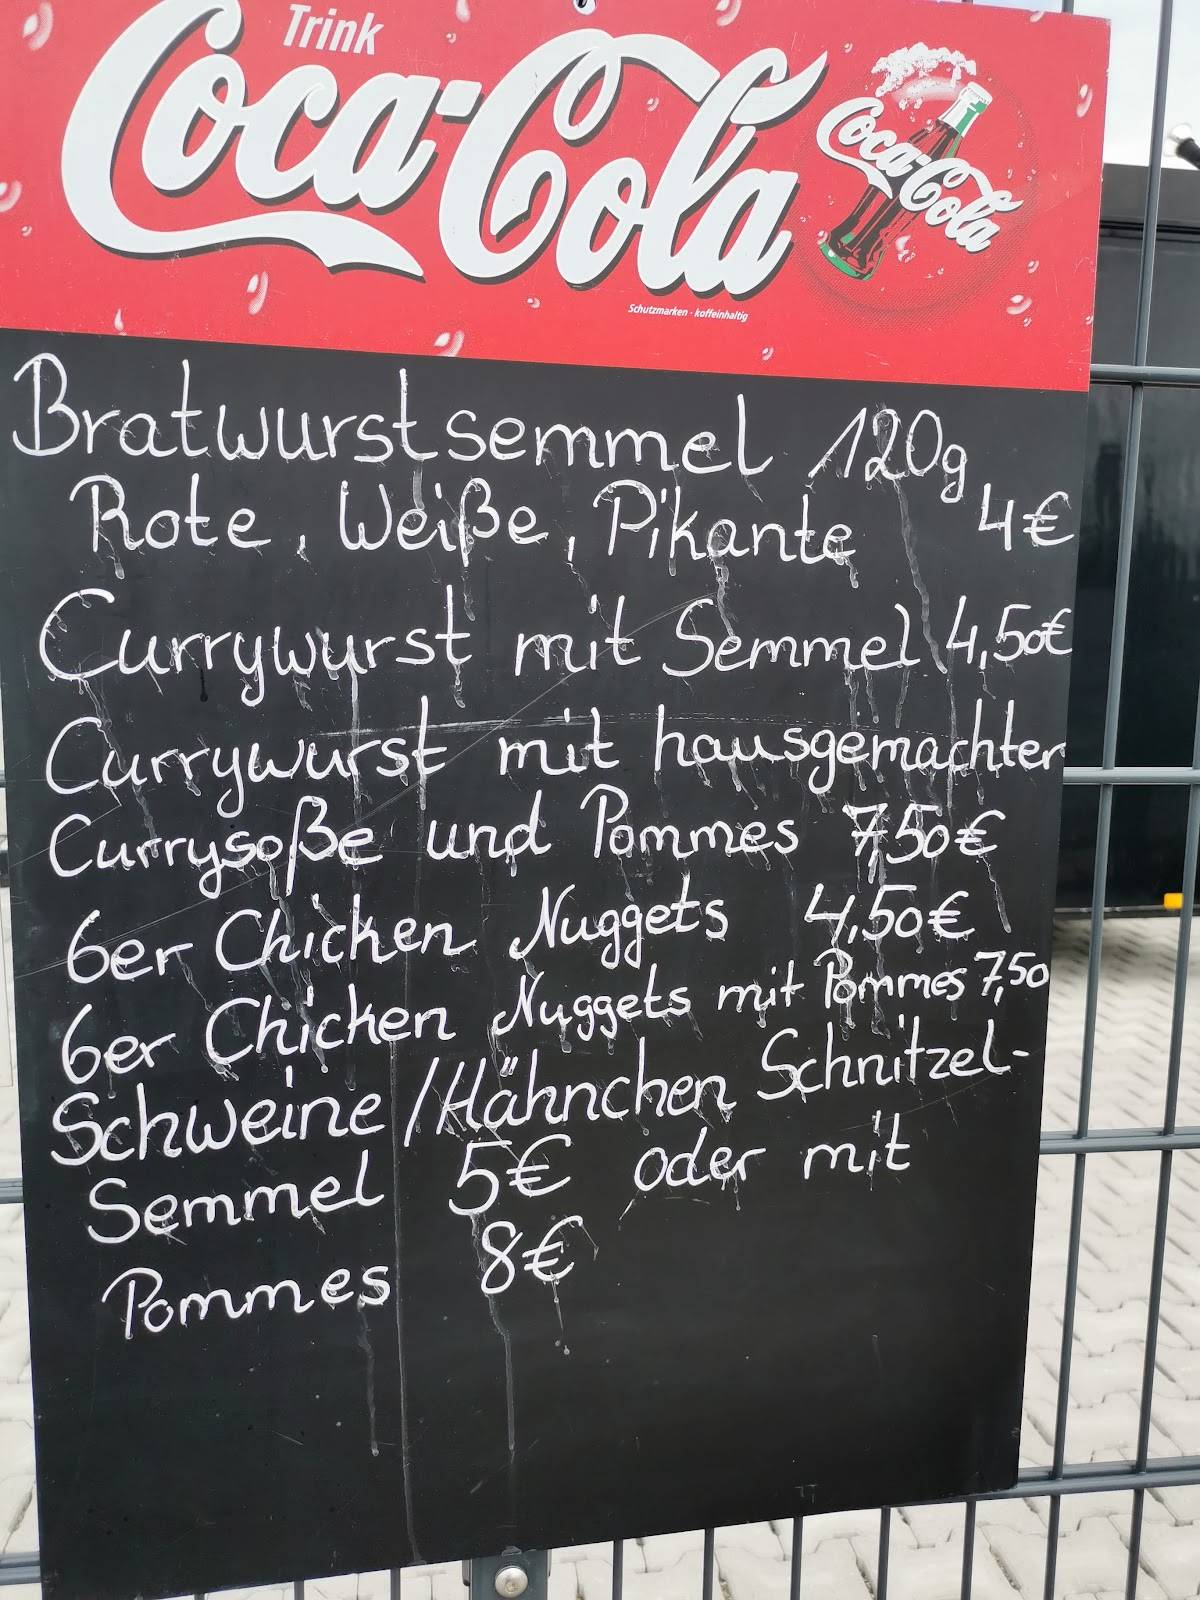 Trink
Coca-Cola
Coca-Cola
Schutzmarken · koffeinhaltig
Bratwurstsemmel 120g
Rote, Weiße, Pikante 4€
Currywurst mit Semmel 4,50€
Currywurst mit hausgemachter
Currysoße und Pommes 7,50€
6er Chicken Nuggets 4,50€
6er Chicken Nuggets mit Pommes 7,50
Schweine/Hähnchen Schnitzel-
Semmel 5€ oder mit
Pommes 8€